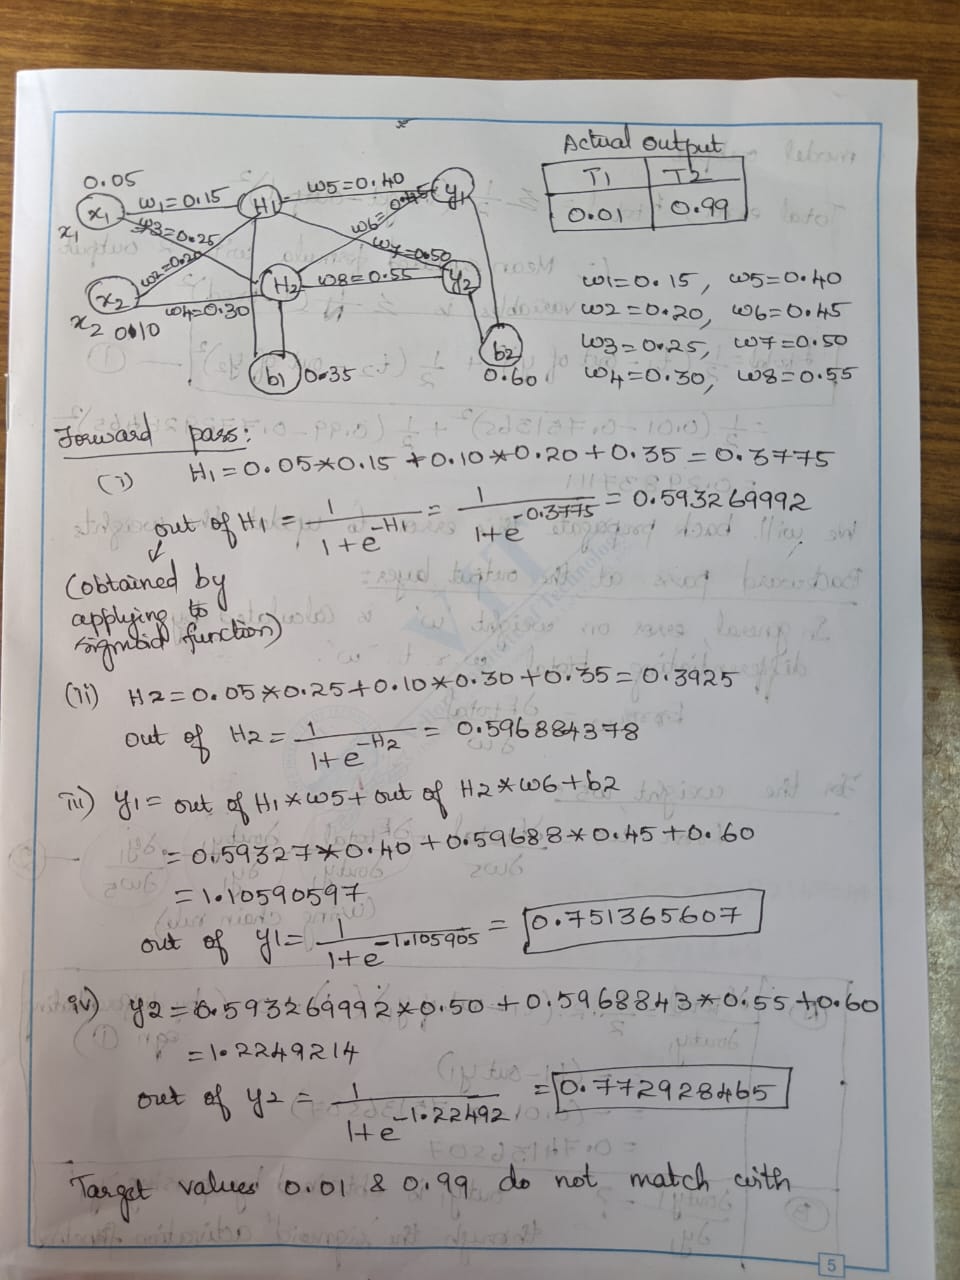 Actual output
T1 T2
0.01 0.99
0.05
x1
x1
w1=0.15
w3=0.25
w2=0.20
x2
x2 0.10
w4=0.30
H1
H2
w5=0.40
w6=0.45
w7=0.50
w8=0.55
y1
y2
b1 0.35
b2
0.60
w1=0.15, w5=0.40
w2=0.20, w6=0.45
w3=0.25, w7=0.50
w4=0.30, w8=0.55
Forward pass:
(i) H1=0.05*0.15+0.10*0.20+0.35=0.3775
out of H1 = 1/(1+e^-H1) = 1/(1+e^-0.3775) = 0.593269992
(obtained by
applying to
sigmoid function)
(ii) H2=0.05*0.25+0.10*0.30+0.35=0.3925
out of H2 = 1/(1+e^-H2) = 0.596884378
iii) y1= out of H1*w5+out of H2*w6+b2
=0.59327*0.40+0.59688*0.45+0.60
=1.10590597
out of y1= 1/(1+e^-1.105905) = 0.751365607
iv) y2=0.593269992*0.50+0.5968843*0.55+0.60
=1.2249214
out of y2 = 1/(1+e^-1.22492) = 0.772928465
Target values 0.01 & 0.99 do not match with
VIT
5